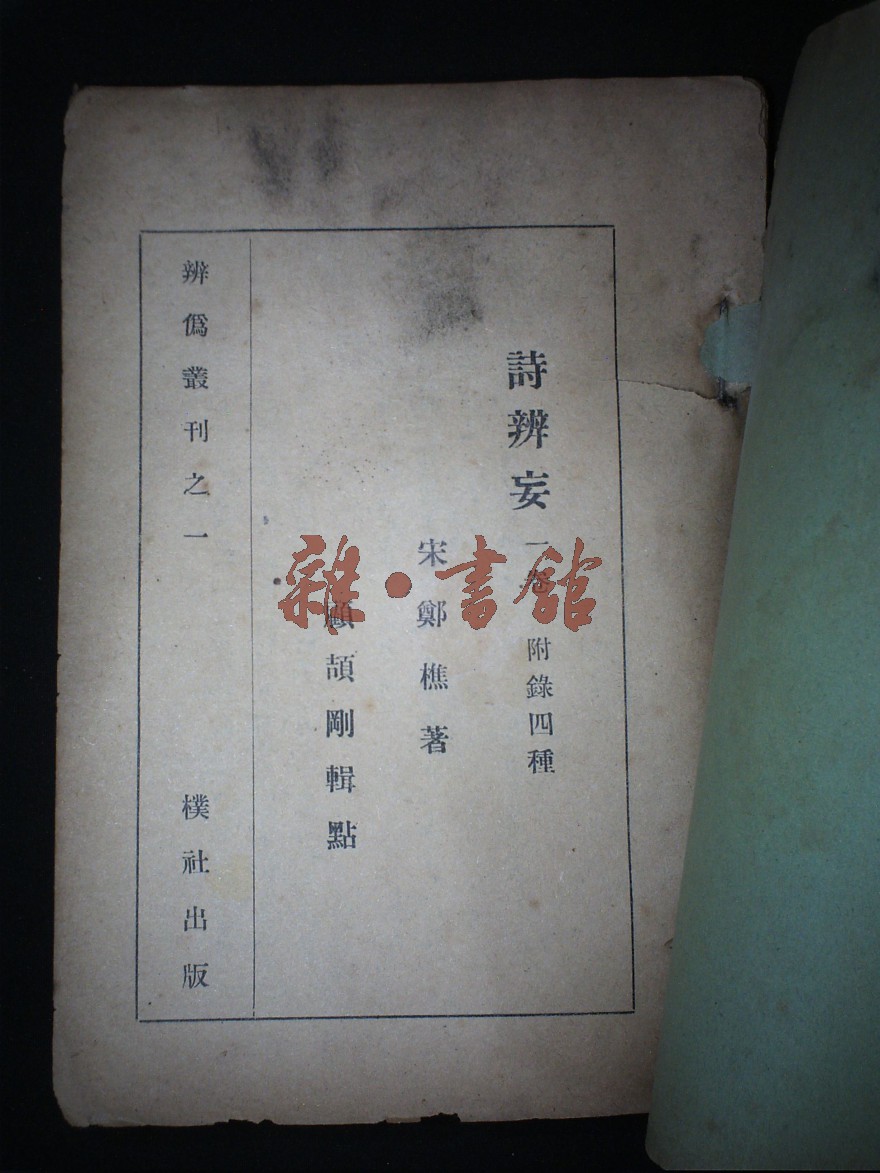 詩辨妄一卷 附錄四種
宋鄭樵著
顧頡剛輯點
辨僞叢刊之一
樸社出版
雜·書館